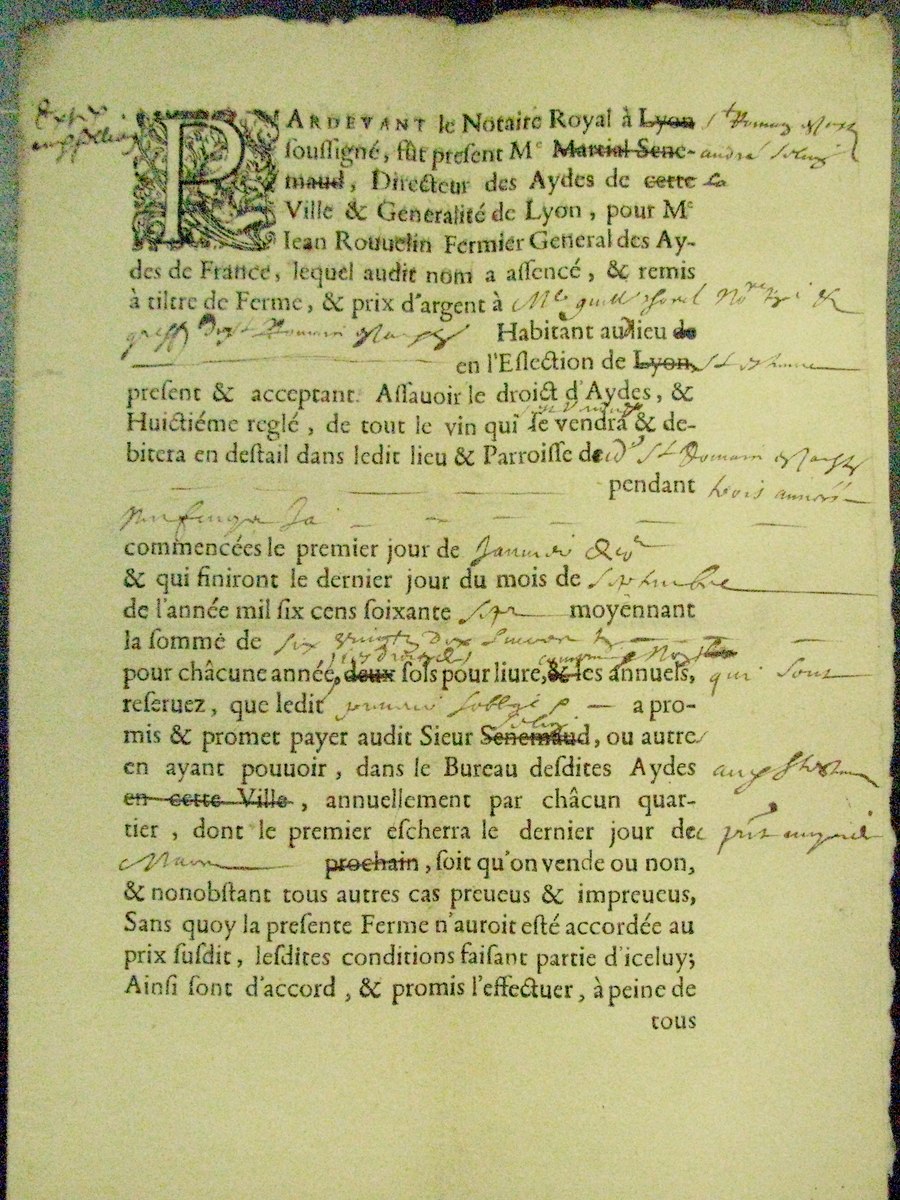 PARDEVANT le Notaire Royal à Lyon
soussigné, fût present Me Martial Sene- andré
maud, Directeur des Aydes de cette la
Ville & Generalité de Lyon, pour Me
Iean Rouuelin Fermier General des Ay-
des de France, lequel audit nom a assencé, & remis
à tiltre de Ferme, & prix d'argent à Me
Habitant au lieu de
en l'Eslection de Lyon, St
present & acceptant. Assauoir le droict d'Aydes, &
Huictiéme reglé, de tout le vin qui se vendra & de-
bitera en destail dans ledit lieu & Parroisse de St Romain
pendant trois années
commencées le premier jour de Januier
& qui finiront le dernier jour du mois de septembre
de l'année mil six cens soixante sept moyennant
la somme de six vingts dix
pour châcune année, deux sols pour liure, & les annuels, qui sont
reseruez, que ledit a pro-
mis & promet payer audit Sieur Senemaud, ou autre
en ayant pouuoir, dans le Bureau desdites Aydes
en cette Ville, annuellement par châcun quar-
tier, dont le premier escherra le dernier jour de
Mars prochain, soit qu'on vende ou non,
& nonobstant tous autres cas preueus & impreueus,
Sans quoy la presente Ferme n'auroit esté accordée au
prix susdit, lesdites conditions faisant partie d'iceluy;
Ainsi sont d'accord, & promis l'effectuer, à peine de
tous